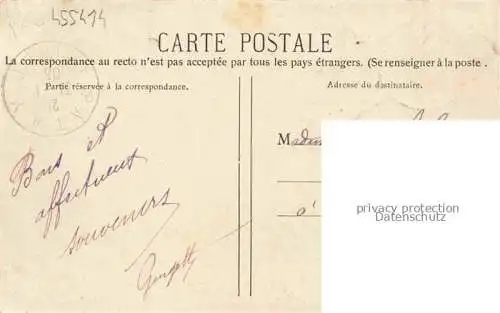 455414
CARTE POSTALE
La correspondance au recto n'est pas acceptée par tous les pays étrangers. (Se renseigner à la poste.
Partie réservée à la correspondance.
Adresse du destinataire.
Bons et
affectueux
souvenirs
privacy protection
Datenschutz